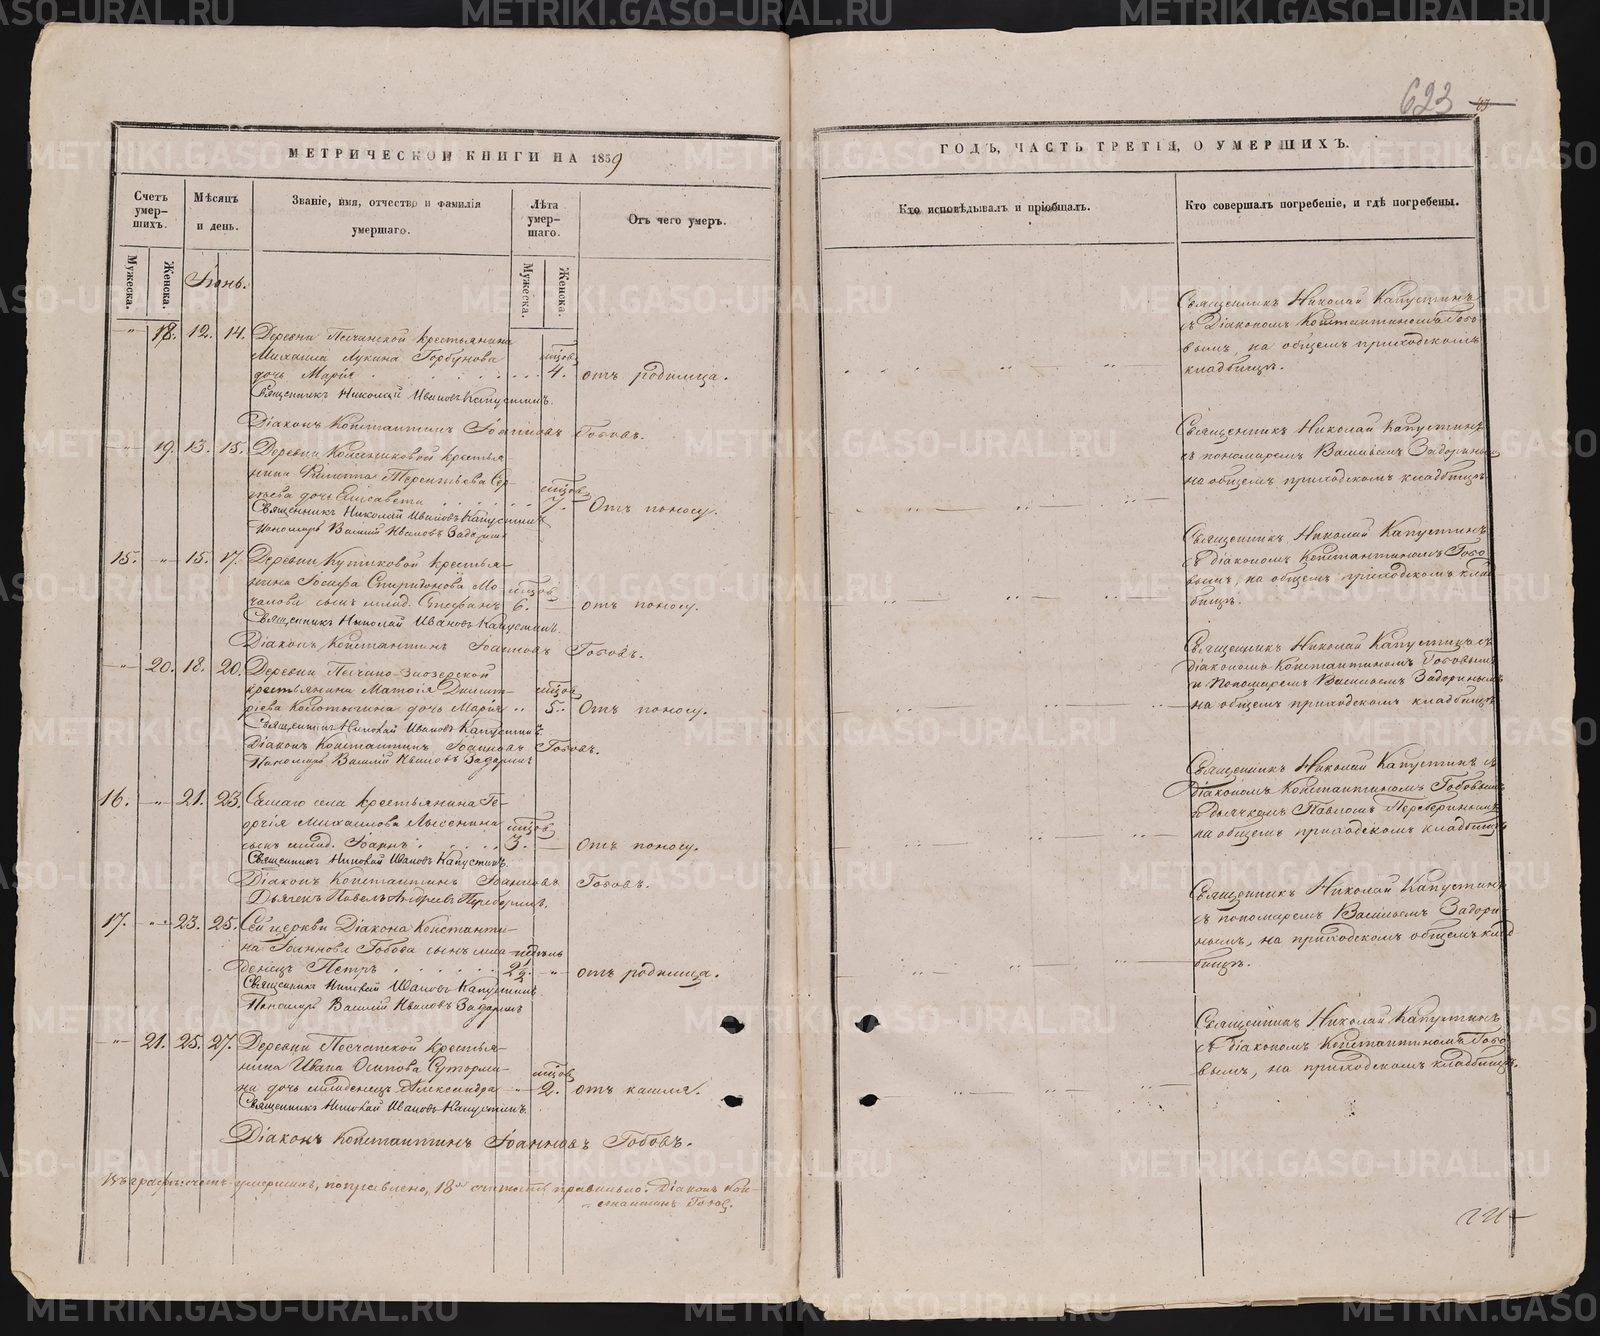 623
МЕТРИЧЕСКОЙ КНИГИ НА 1859
ГОДЪ, ЧАСТЬ ТРЕТІЯ, О УМЕРШИХЪ.
Счетъ умер-
шихъ.
Мѣсяцъ
и день.
Званіе, имя, отчество и фамилія
умершаго.
Лѣта
умер-
шаго.
Отъ чего умеръ.
Кто исповѣдывалъ и пріобщалъ.
Кто совершалъ погребеніе, и гдѣ погребены.
Мужеска.
Женска.
Іюнь.
Мужеска.
Женска.
18. 12. 14. Деревни Песчанской крестьянина
Михаила Лукина Горбунова мѣсяцов
дочь Марія 4. отъ родимца.
Священникъ Николай Ивановъ Капустинъ.
Діаконъ Константинъ Іоанновъ Гобовъ.
Священникъ Николай Капустинъ
съ Діакономъ Константиномъ Гобо-
вымъ, на общемъ приходскомъ
кладбищѣ.
19. 13. 15. Деревни крестья-
нина Терентьева Сер-
дочь Елисавета 7. Отъ поносу.
Священникъ Николай Ивановъ Капустинъ
Пономарь Василій Ивановъ Задоринъ
Священникъ Николай Капустинъ
съ пономаремъ Василіемъ Задоринымъ
на общемъ приходскомъ кладбищѣ.
15. 15. 17. Деревни крестья-
нина Іосифа Спиридонова Мо-
чалова сынъ млад. Стефанъ 6. отъ поносу.
Священникъ Николай Ивановъ Капустинъ.
Діаконъ Константинъ Іоанновъ Гобовъ.
Священникъ Николай Капустинъ
съ діакономъ Константиномъ Гобо-
вымъ, на общемъ приходскомъ клад-
бищѣ.
20. 18. 20. Деревни Песчано-
крестьянина Матѳія Дмит-
ріева дочь Марія 5. Отъ поносу.
Священникъ Николай Ивановъ Капустинъ
Діаконъ Константинъ Іоанновъ Гобовъ.
Пономарь Василій Ивановъ Задоринъ
Священникъ Николай Капустинъ съ
діакономъ Константиномъ Гобовымъ
и Пономаремъ Василіемъ Задоринымъ
на общемъ приходскомъ кладбищѣ
16. 21. 23. Самаго села крестьянина Ге-
оргія Михайлова
сынъ млад. Іоаннъ 3. Отъ поносу.
Священникъ Николай Ивановъ Капустинъ.
Діаконъ Константинъ Іоанновъ Гобовъ.
Дьячекъ Павелъ
Священникъ Николай Капустинъ съ
Діакономъ Константиномъ Гобовымъ
и дьячкомъ Павломъ
на общемъ приходскомъ кладбищѣ
17. 23. 25. Сей церкви Діакона Константи-
на Іоаннова Гобова сынъ мла-
денецъ Петръ 2½ отъ родимца.
Священникъ Николай Ивановъ Капустинъ
Пономарь Василій Ивановъ Задоринъ
Священникъ Николай Капустинъ
съ пономаремъ Василіемъ Задори-
нымъ, на приходскомъ общемъ клад-
бищѣ.
21. 25. 27. Деревни Песчанской крестья-
нина Ивана Осипова Суторми-
на дочь младенецъ Александра 2. отъ кашля.
Священникъ Николай Ивановъ Капустинъ.
Діаконъ Константинъ Іоанновъ Гобовъ.
Священникъ Николай Капустинъ
съ діакономъ Константиномъ Гобо-
вымъ, на приходскомъ кладбищѣ.
Въ графѣ: счетъ умершихъ, поправлено, 18 считать правильно. Діаконъ Кон-
стантинъ Гобовъ.
METRIKI.GASO-URAL.RU